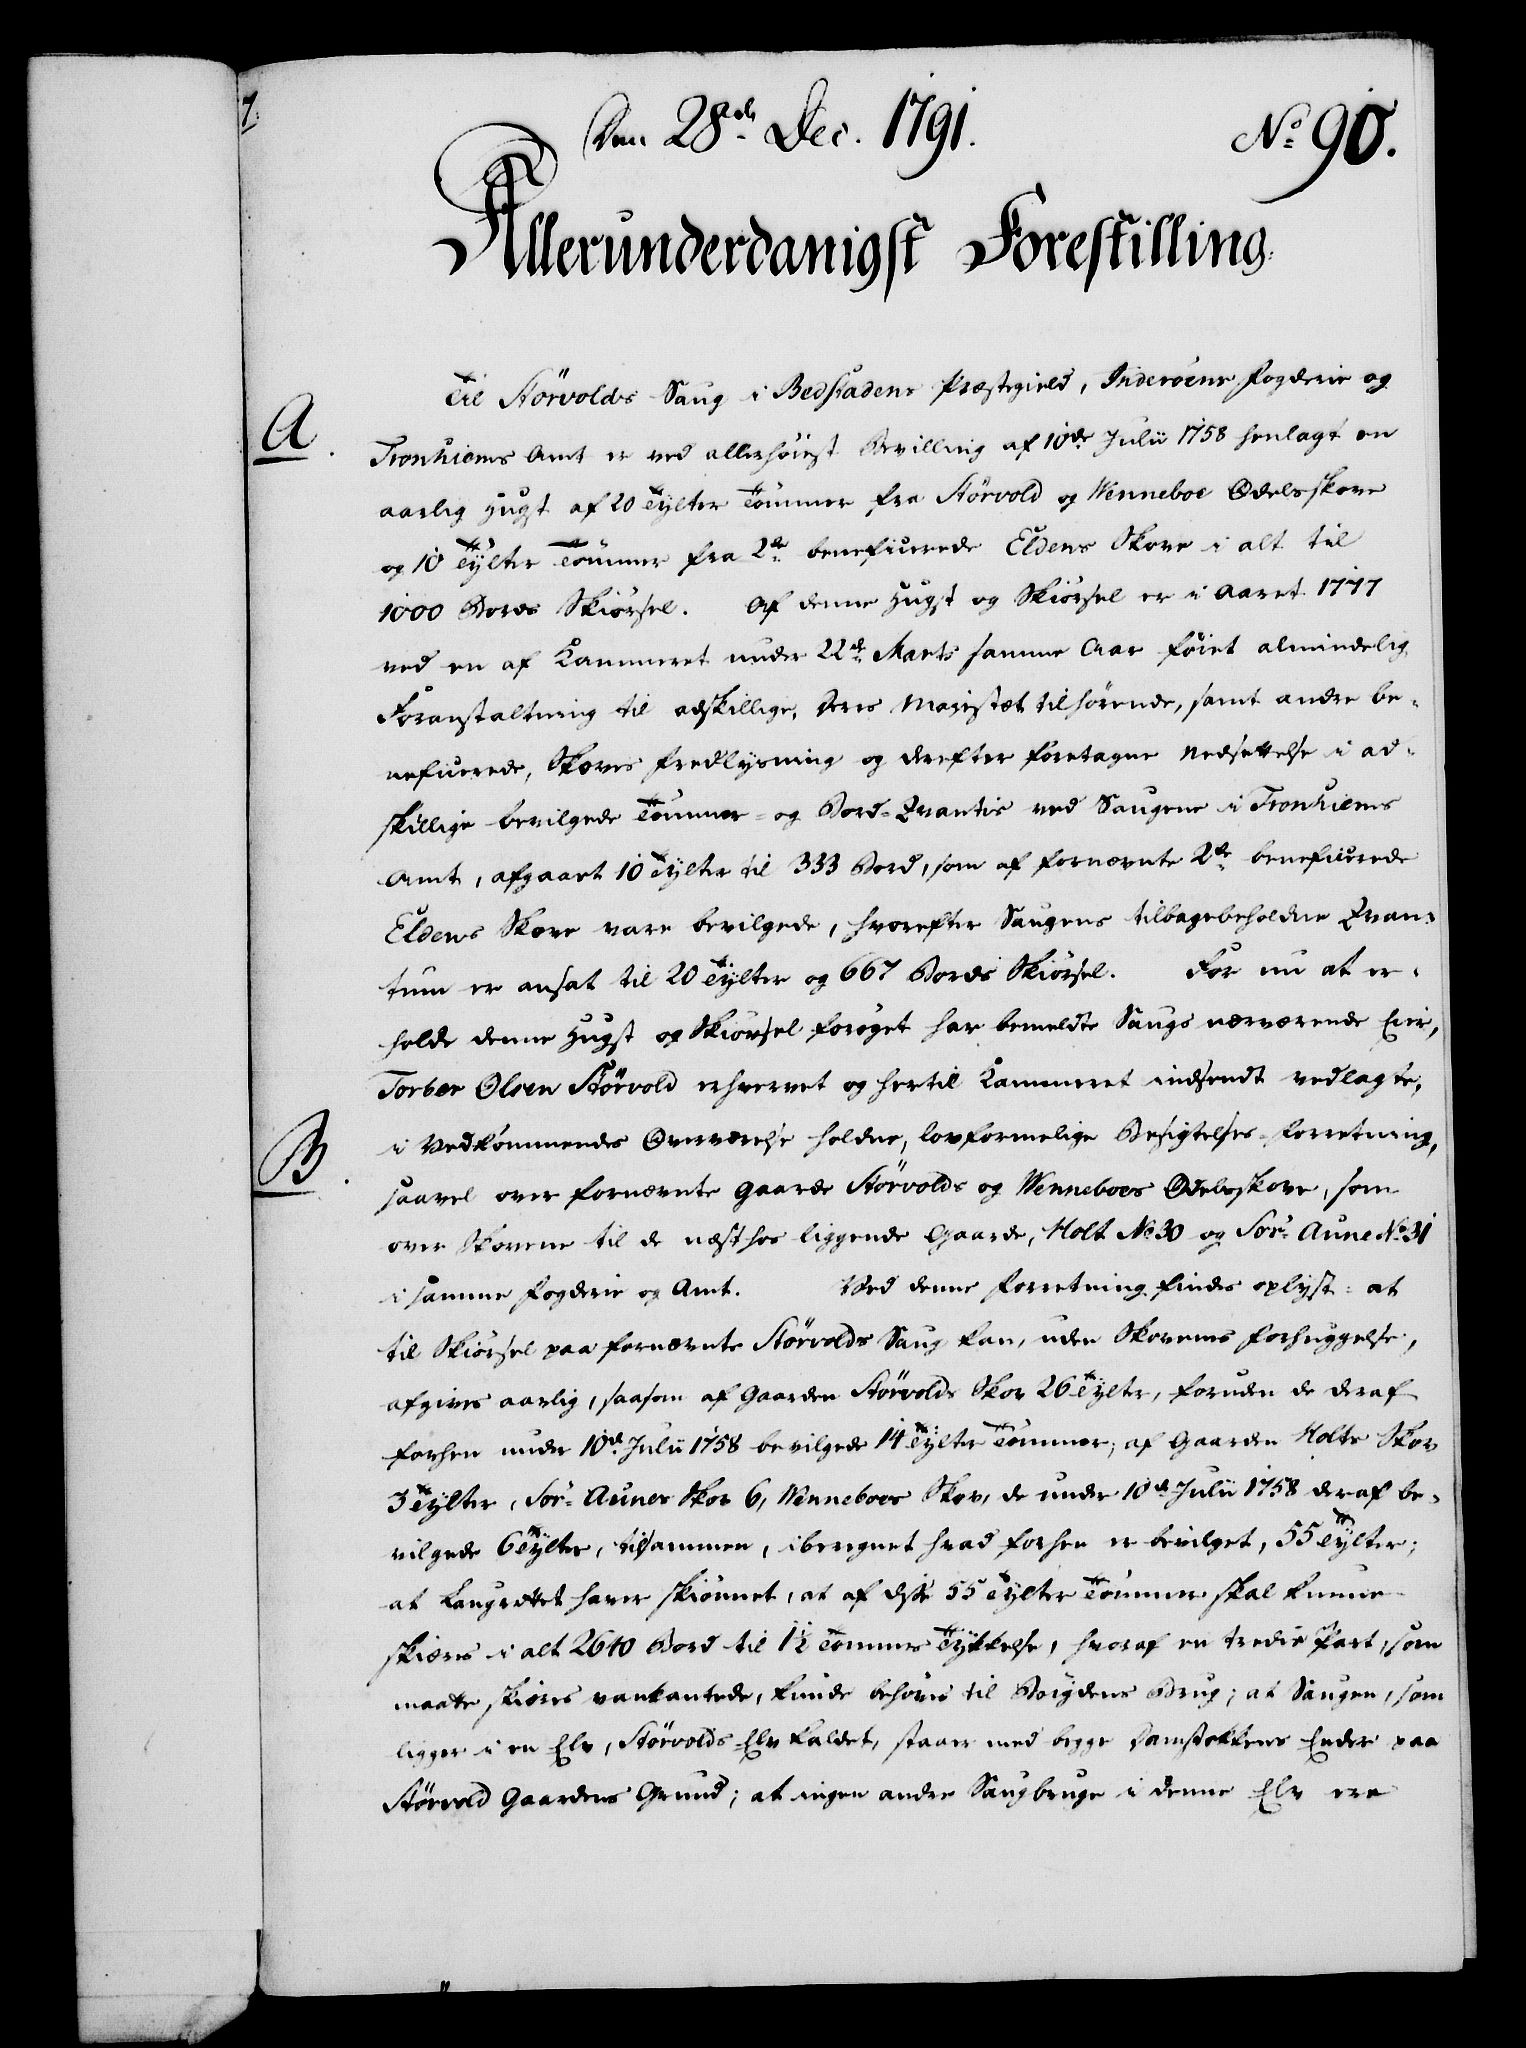 7.
Den 28de Dec. 1791.
No 90.
Allerunderdanigst Forestilling.
A.
Til Störvolds Saug i Bedstadens Præstegield, Inderöens Fogderie og
Tronhiems Amt er ved allerhöiest Bevilling af 10de Julii 1758 henlagt en
aarlig Hugst af 20 Tylter Tömmer fra Störvold og Wenneboe Odelsskove
og 10 Tylter Tömmer fra 2de beneficerede Eldens Skove i alt til
1000 Bords Skiörsel. Af denne Hugst og Skiörsel er i Aaret 1777
ved en af Kammeret under 22de Marts samme Aar föiet almindelig
Foranstaltning til adskillige, Deres Majestæt tilhörende, samt andre be-
neficerede, Skoves Fredlysning og derefter foretagne Nedsættelse i ad-
skillige bevilgede Tömmer- og Bord-Qvantis ved Saugene i Tronhiems
Amt, afgaaet 10 Tylter til 333 Bord, som af fornævnte 2de beneficerede
Eldens Skove vare bevilgede, hvorefter Saugens tilbagebeholdne Qvan-
tum er ansat til 20 Tylter og 667 Bords Skiörsel. For nu at er-
holde denne Hugst og Skiörsel foröget har bemeldte Saugs nærværende Eier,
Torber Olsen Störvold erhvervet og hertil Kammeret indsendt vedlagte,
B.
i Vedkommendes Overværelse holdne, lovformelige Besigtelses-Forretning,
saavel over fornævnte Gaarde Störvolds og Wenneboes Odelsskove, som
over Skovene til de næsthos liggende Gaarde, Holt No 30 og Sör-Aune No 31
i samme Fogderie og Amt. Ved denne Forretning findes oplyst: at
til Skiörsel paa fornævnte Störvolds Saug kan, uden Skovenes Forhuggelse,
afgives aarlig, saasom af Gaarden Störvolds Skov 26 Tylter, foruden de deraf
forhen under 10de Julii 1758 bevilgede 14 Tylter Tömmer; af Gaarden Holts Skov
3 Tylter, Sör-Aunes Skov 6, Wenneboes Skov, de under 10de Julii 1758 deraf be-
vilgede 6 Tylter, tilsammen, iberegnet hvad forhen er bevilget, 55 Tylter;
at Laugrettet haver skiönnet, at af disse 55 Tylter Tömmer skal kunne
skiæres i alt 2640 Bord til 1½ Tommes Tykkelse, hvoraf en tredie Part, som
maatte skiæres vankantede, kunde behöves til Böigdens Brug; at Saugen, som
ligger i en Elv, Störvolds-Elv kaldet, staaer med begge Damstokkens Ender paa
Störvold Gaardens Grund; at ingen andre Saugbruge i denne Elv ere